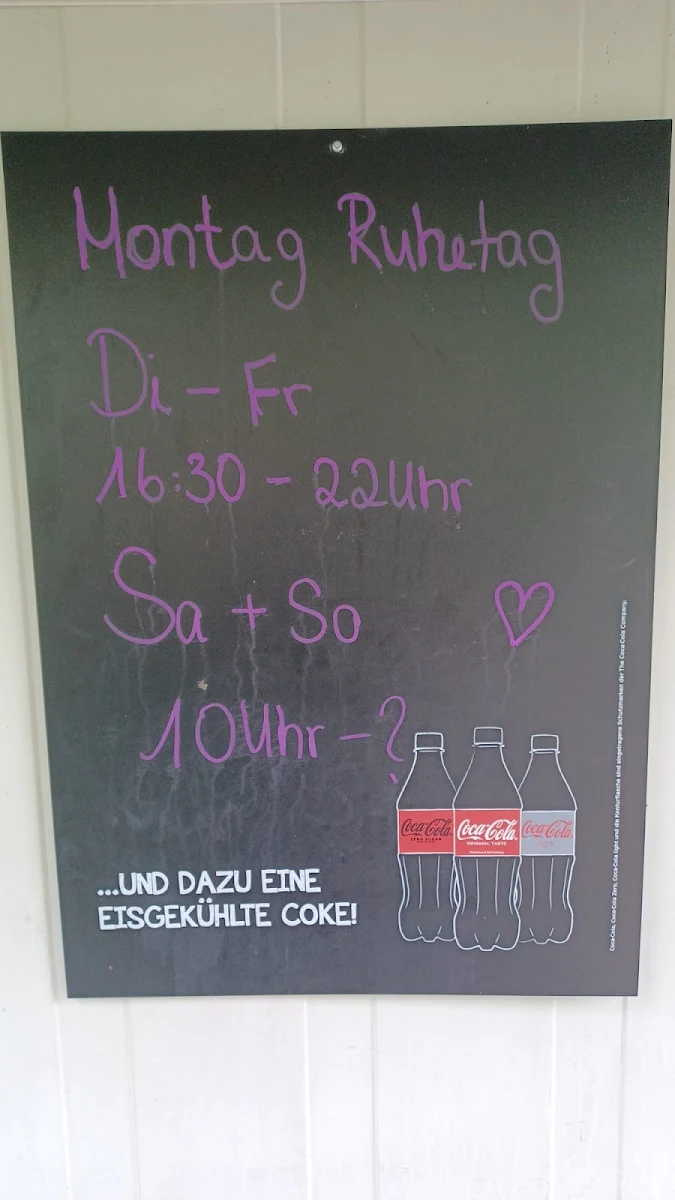 Montag Ruhetag
Di - Fr
16:30 - 22Uhr
Sa + So
10Uhr - ?
...UND DAZU EINE
EISGEKÜHLTE COKE!
Coca-Cola
ZERO SUGAR
Coca-Cola
ORIGINAL TASTE
Coca-Cola
light
Coca-Cola, Coca-Cola Zero, Coca-Cola light und die Konturflasche sind eingetragene Schutzmarken der The Coca-Cola Company.